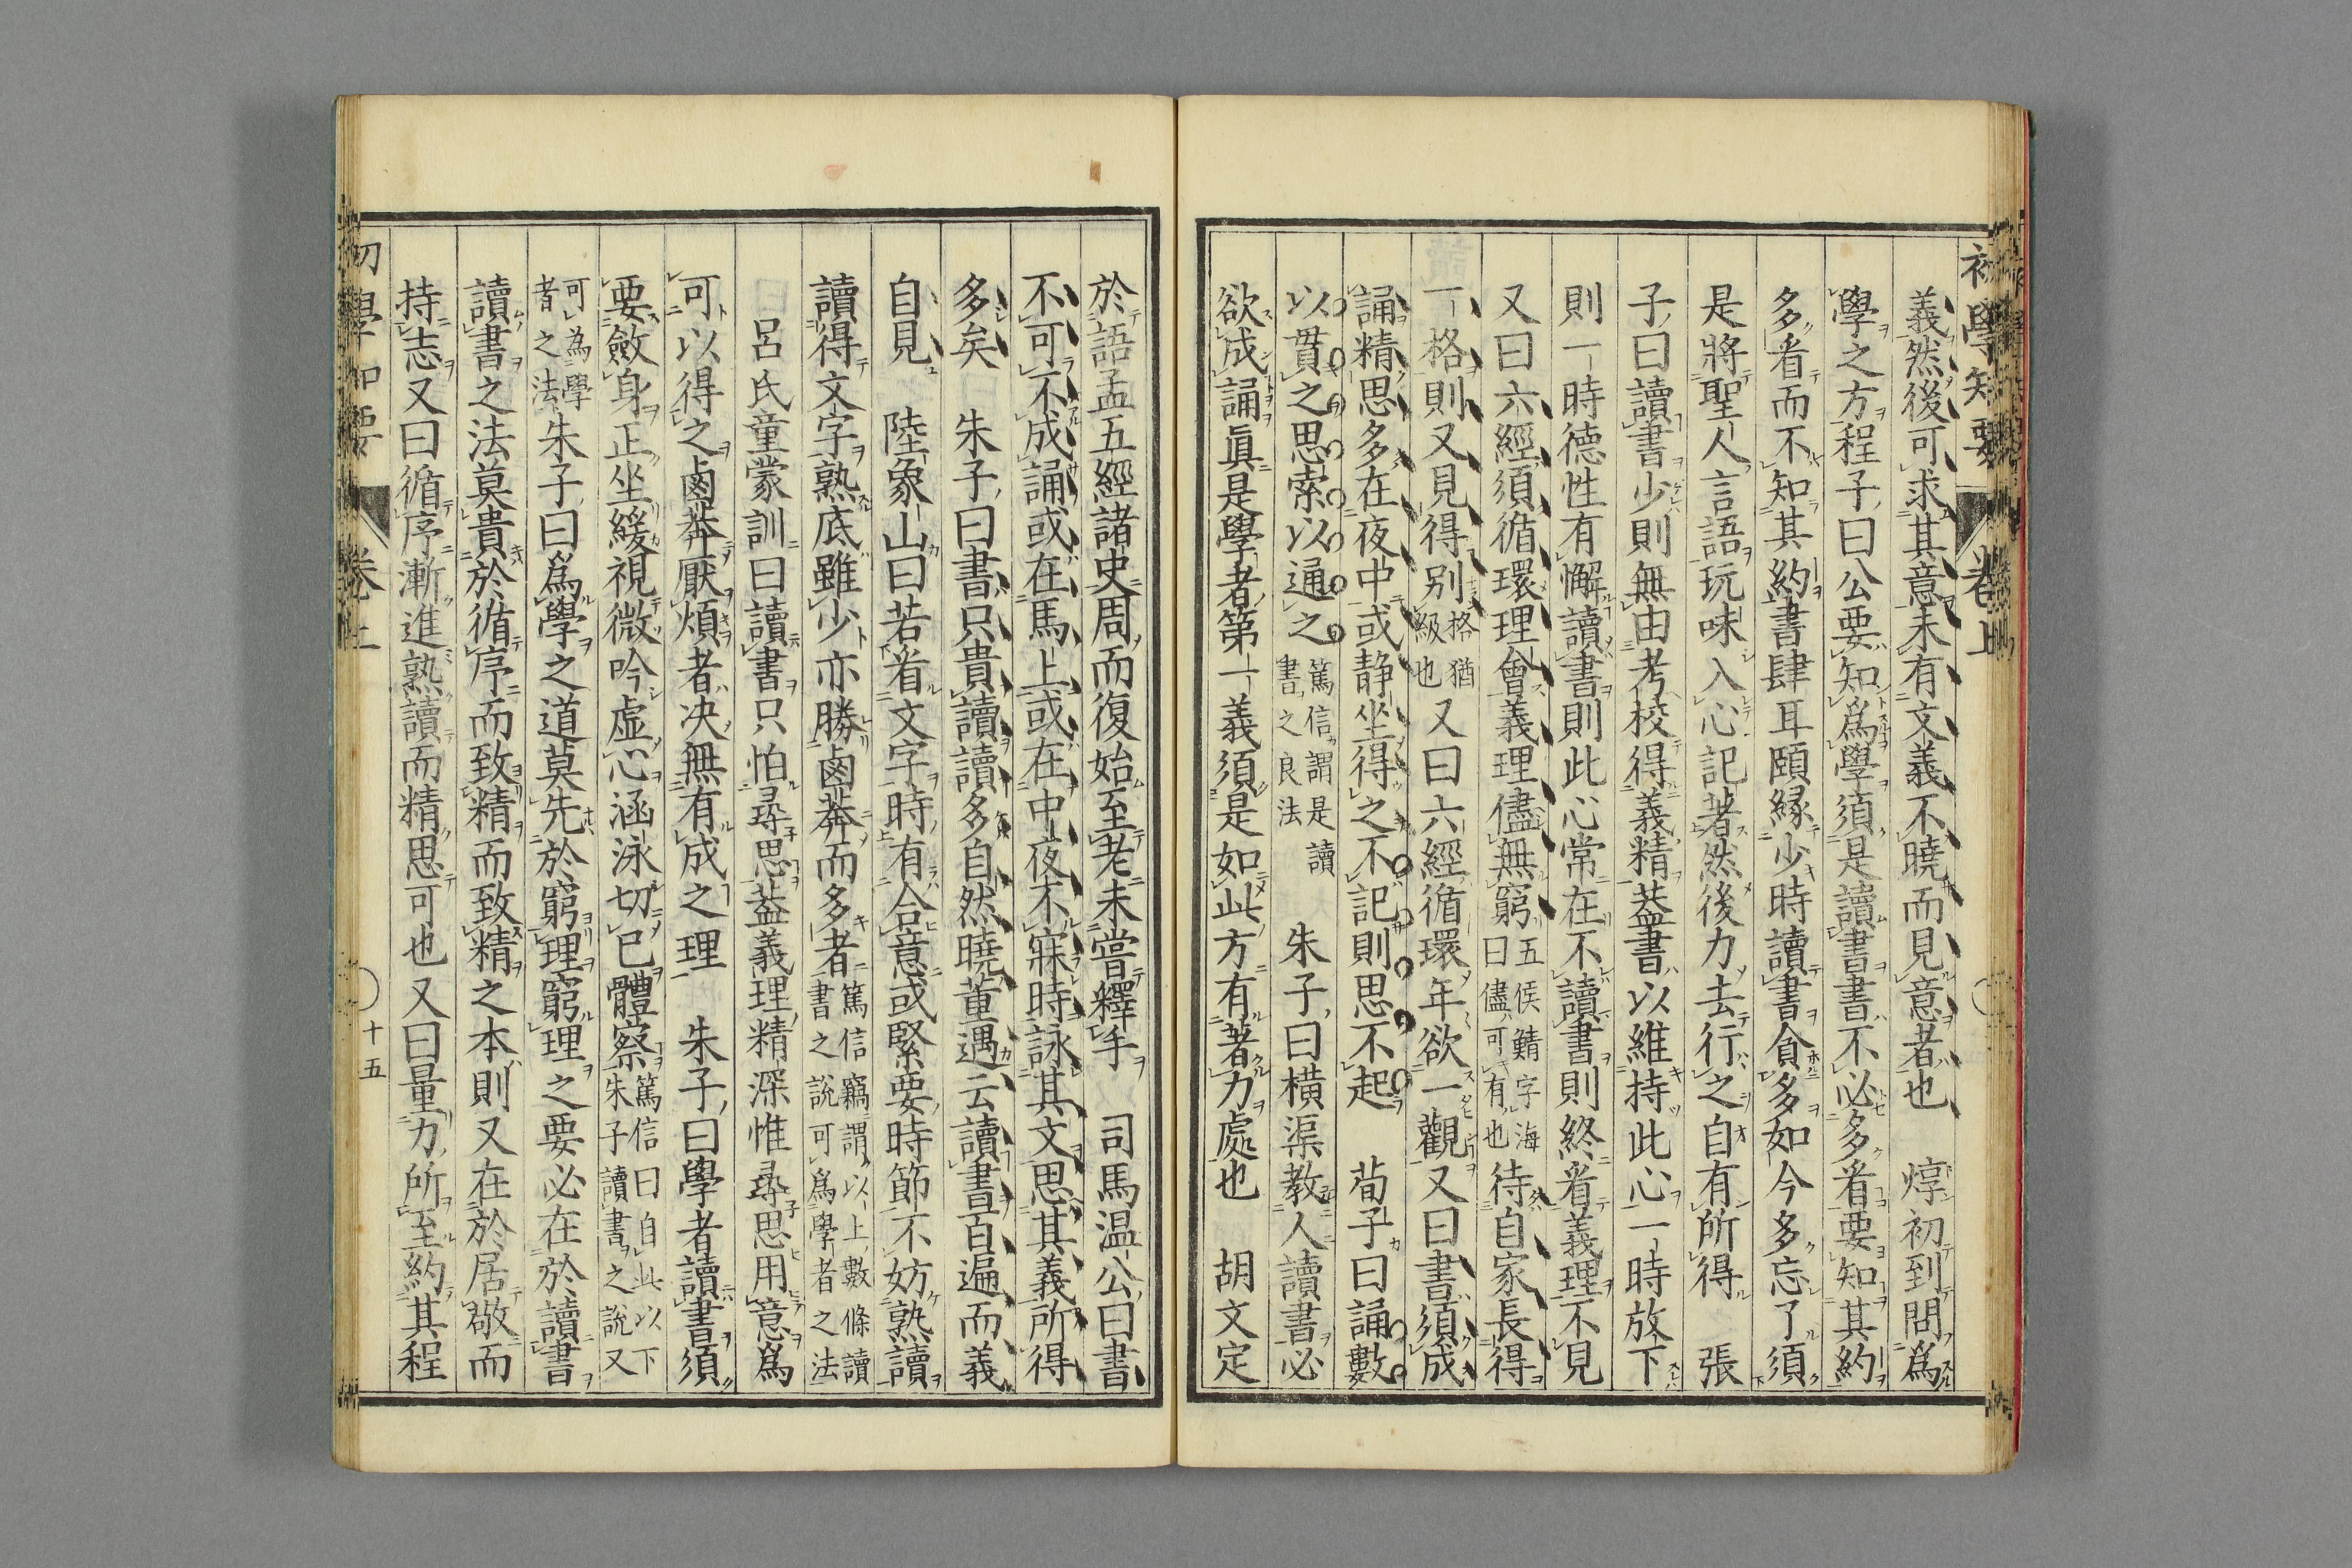 初學知要 卷上
義然後可求其意未有文義不曉而見意者也 焞初到問爲
學之方程子曰公要知爲學須是讀書書不必多看要知其約
多看而不知其約書肆耳頤緣少時讀書貪多如今多忘了須
是將聖人言語玩味入心記著然後力去行之自有所得 張
子曰讀書少則無由考校得義精葢書以維持此心一時放下
則一時德性有懈讀書則此心常在不讀書則終看義理不見
又曰六經須循環理會義理儘無窮五侯鯖字海曰儘可有也待自家長得
一格則又見得別格猶級也又曰六經循環年欲一觀又曰書須成
誦精思多在夜中或靜坐得之不記則思不起 荀子曰誦數
以貫之思索以通之篤信謂是讀書之良法 朱子曰橫渠教人讀書必
欲成誦眞是學者第一義須是如此方有著力處也 胡文定
於語孟五經諸史周而復始至老未嘗釋手 司馬温公曰書
不可不成誦或在馬上或在中夜不寐時詠其文思其義所得
多矣 朱子曰書只貴讀讀多自然曉董遇云讀書百遍而義
自見 陸象山曰若看文字時有合意或緊要時節不妨熟讀
讀得文字熟底雖少亦勝鹵莽而多者篤信竊謂以上數條讀書之說可爲學者之法
呂氏童蒙訓曰讀書只怕尋思葢義理精深惟尋思用意爲
可以得之鹵莽厭煩者决無有成之理 朱子曰學者讀書須
要斂身正坐緩視微吟虛心涵泳切已體察篤信曰自此以下朱子讀書之說又
可為學者之法朱子曰爲學之道莫先於窮理窮理之要必在於讀書
讀書之法莫貴於循序而致精而致精之本則又在於居敬而
持志又曰循序漸進熟讀而精思可也又曰量力所至約其程
初學知要 卷上 十五